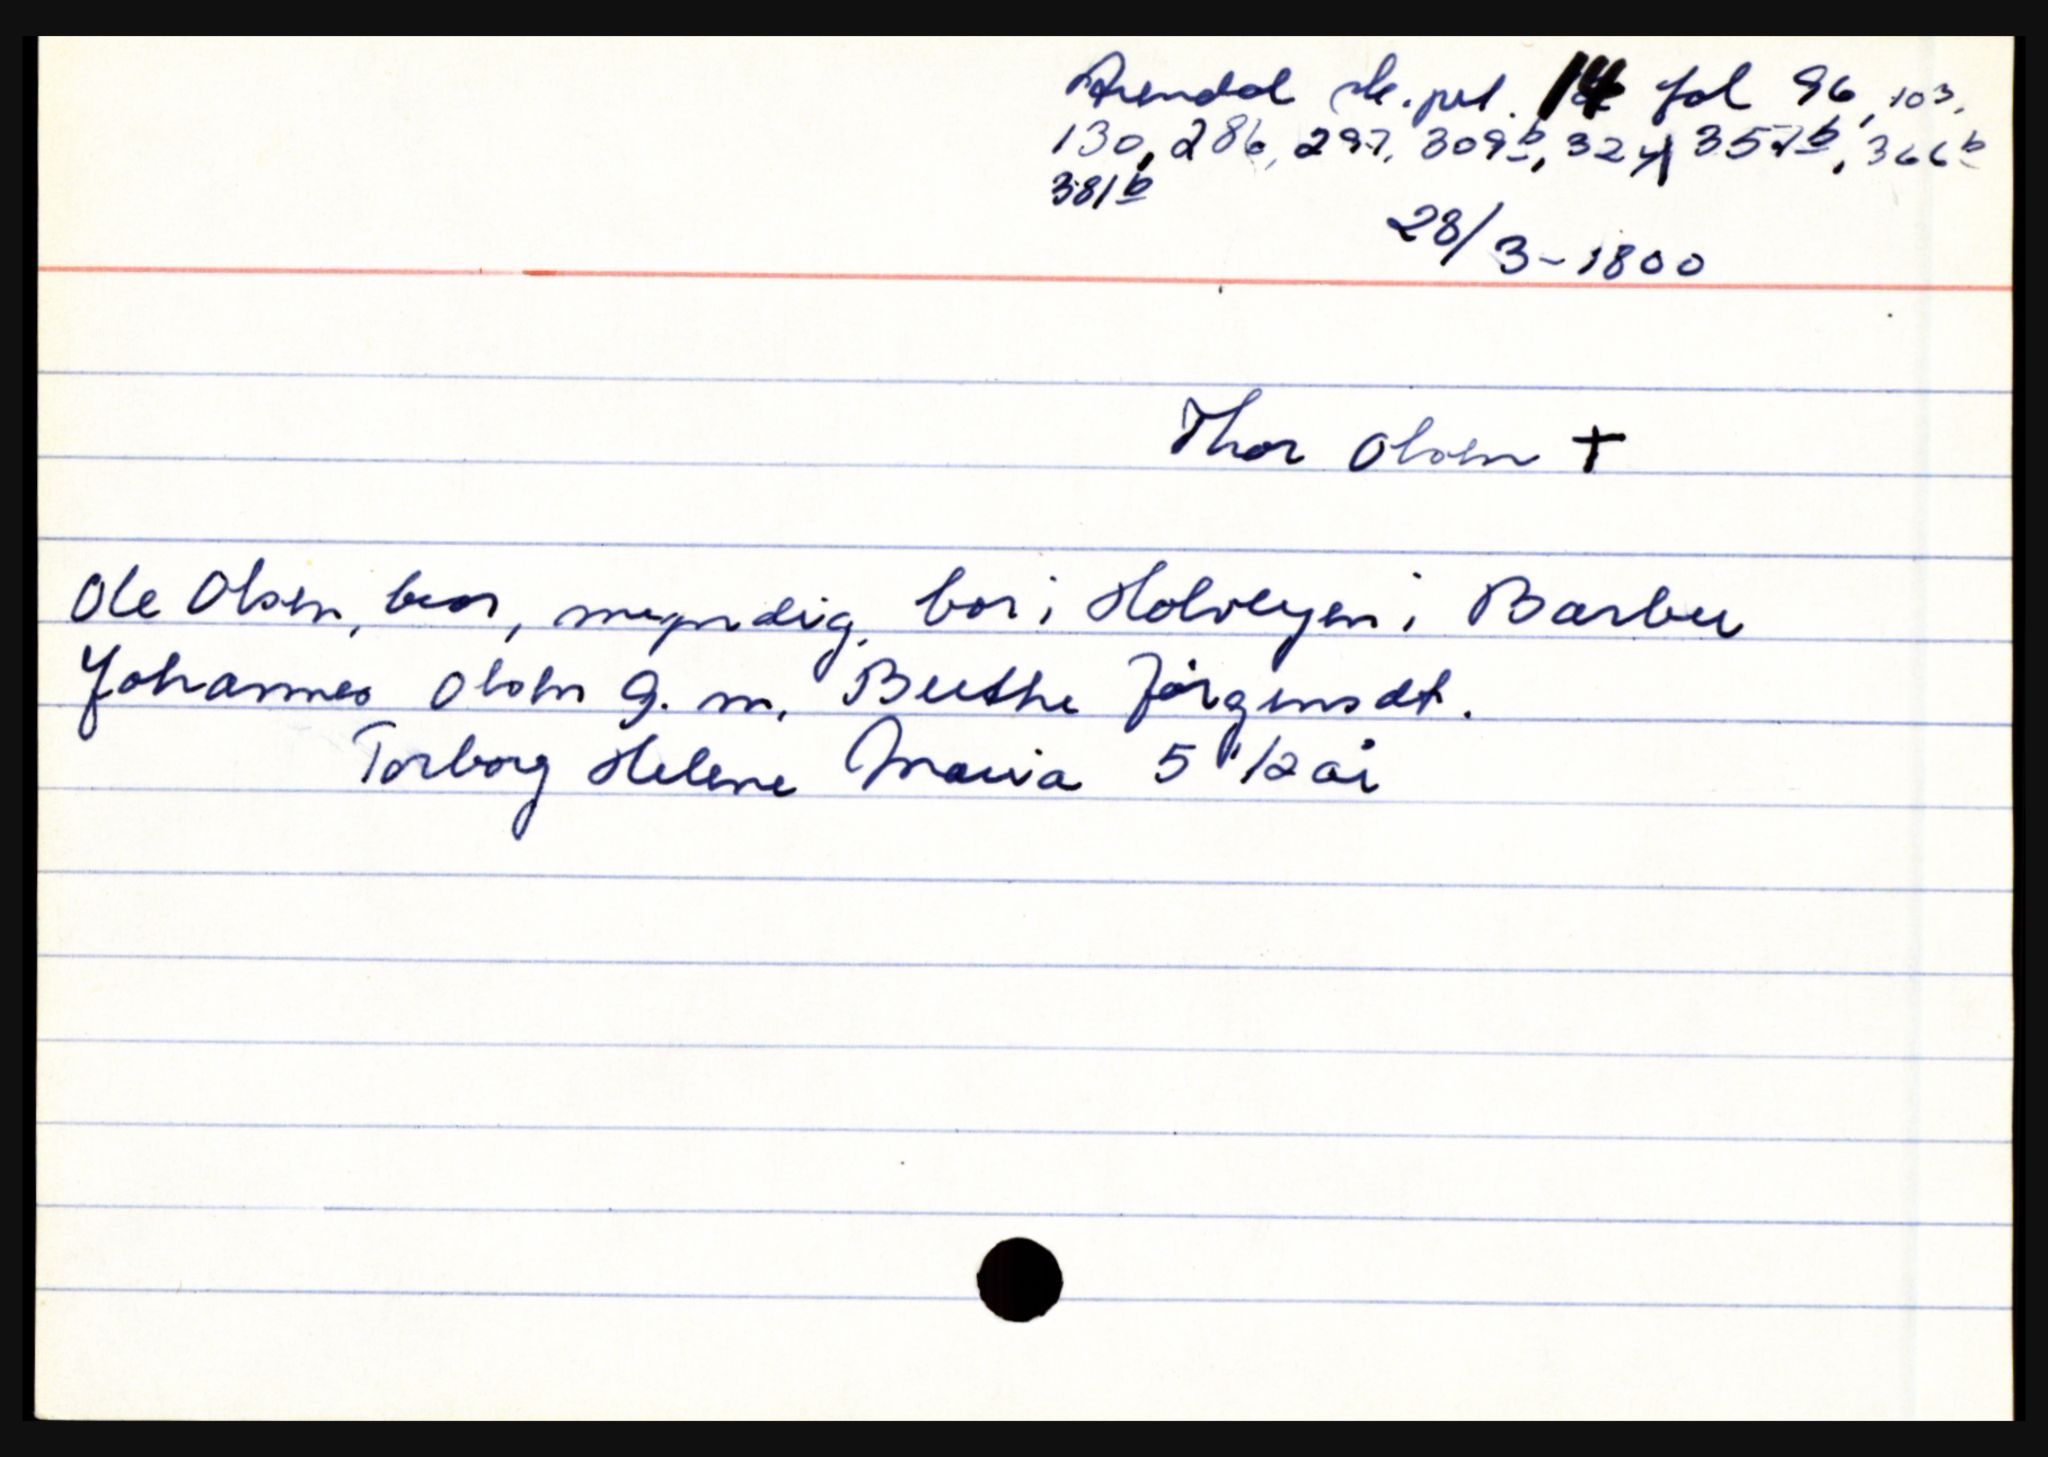 Arendal sk.prt. 14 fol 96, 103,
130, 286, 297, 309b, 324, 357b, 366b
381b
28/3-1800
Thor Olsen +
Ole Olsen, bror, myndig, bor i Holveyen i Barbu
Johannes Olsen g. m. Berthe Jørgensdt.
Torborg Helene Maria 5 1/2 år